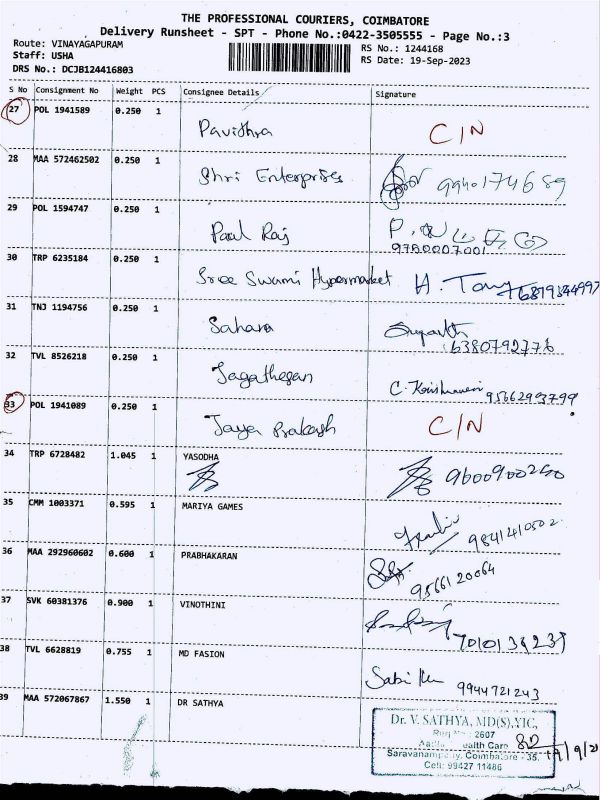 THE PROFESSIONAL COURIERS, COIMBATORE
Delivery Runsheet - SPT - Phone No.:0422-3505555 - Page No.:3
Route: VINAYAGAPURAM
Staff: USHA
DRS No.: DCJB124416803
RS No.: 1244168
RS Date: 19-Sep-2023
S No Consignment No Weight PCS Consignee Details Signature
27 POL 1941589 0.250 1 Pavithra C/N
28 MAA 572462502 0.250 1 Shri Enterprises
29 POL 1594747 0.250 1 Paul Raj
9780007001
30 TRP 6235184 0.250 1 Sree Swami Hypermarket
31 TNJ 1194756 0.250 1 Sahana
6380792776
32 TVL 8526218 0.250 1 Jagathesan
33 POL 1941089 0.250 1 Jaya Prakash C/N
34 TRP 6728482 1.045 1 YASODHA
35 CMM 1003371 0.595 1 MARIYA GAMES
9841410502
36 MAA 292960602 0.600 1 PRABHAKARAN
9566120064
37 SVK 60381376 0.900 1 VINOTHINI
38 TVL 6628819 0.755 1 MD FASION
9944721243
39 MAA 572067867 1.550 1 DR SATHYA
Dr. V. SATHYA, MD(S),YIC,
2607
Health Care
Coimbatore - 35.
Cell: 99427 11486